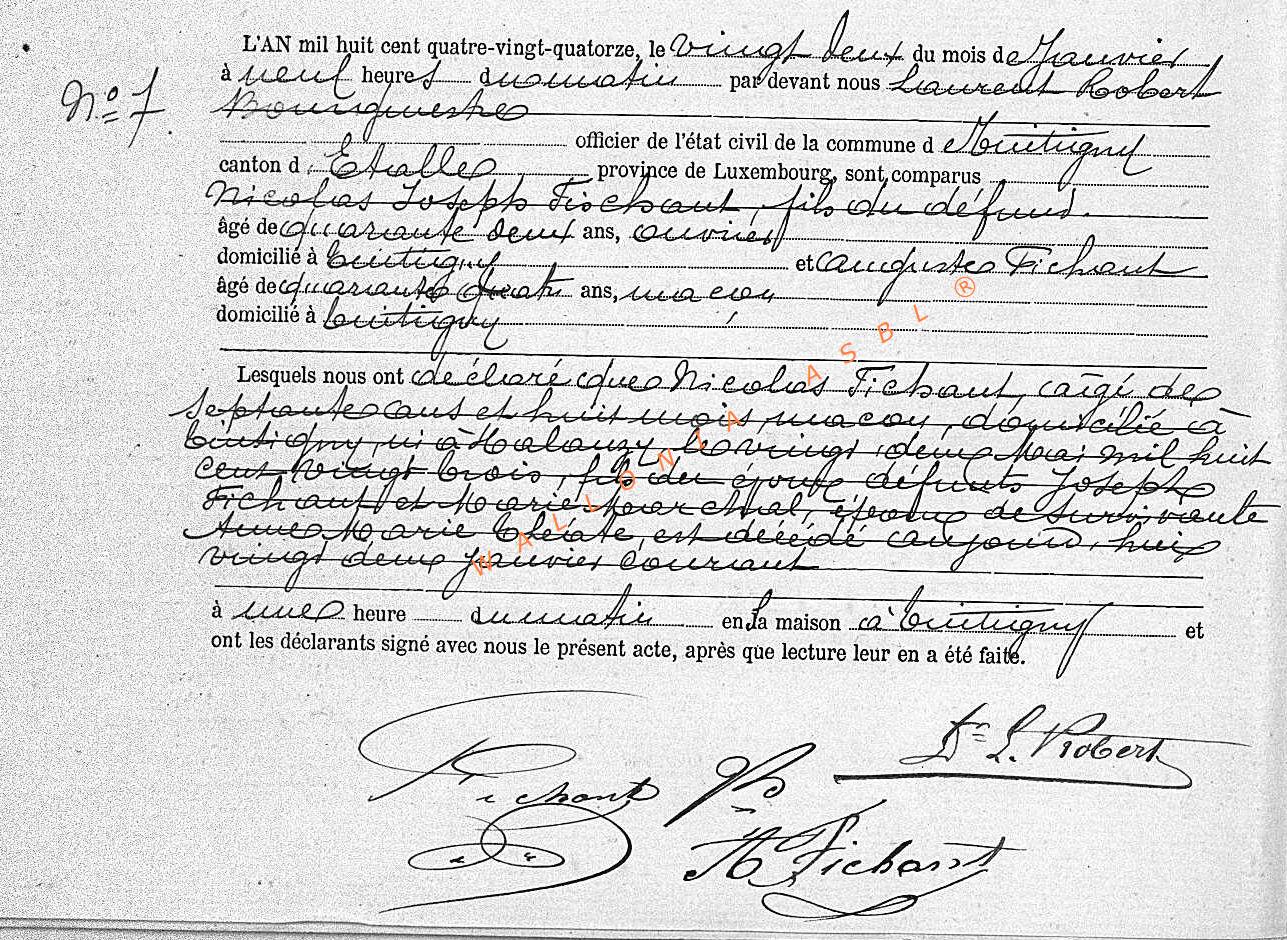 L'AN mil huit cent quatre-vingt-quatorze, le vingt deux du mois de Janvier
N° 7 à neuf heures du matin par devant nous Laurent Robert
Bourgmestre
officier de l'état civil de la commune d e Tintigny
canton d' Etalle province de Luxembourg, sont comparus
Nicolas Joseph Fischant, fils du défunt.
âgé de quarante deux ans, ouvrier
domicilié à tintigny et auguste Fichant
âgé de quarante quatre ans, maçon
domicilié à tintigny
Lesquels nous ont déclaré que Nicolas Fichant, agé de
septante ans et huit mois, maçon, domicilié à
tintigny, né à Halanzy le vingt deux Mai mil huit
cent vingt trois, fils des époux défunts Joseph
Fichant et Marie Marchal, époux de survivante
Anne Marie est décédé aujourd'hui
vingt deux Janvier courant
à une heure du matin en la maison à tintigny et
ont les déclarants signé avec nous le présent acte, après que lecture leur en a été faite.
Dr L. Robert
Fichant
A Fichant
WALLONIA ASBL ®